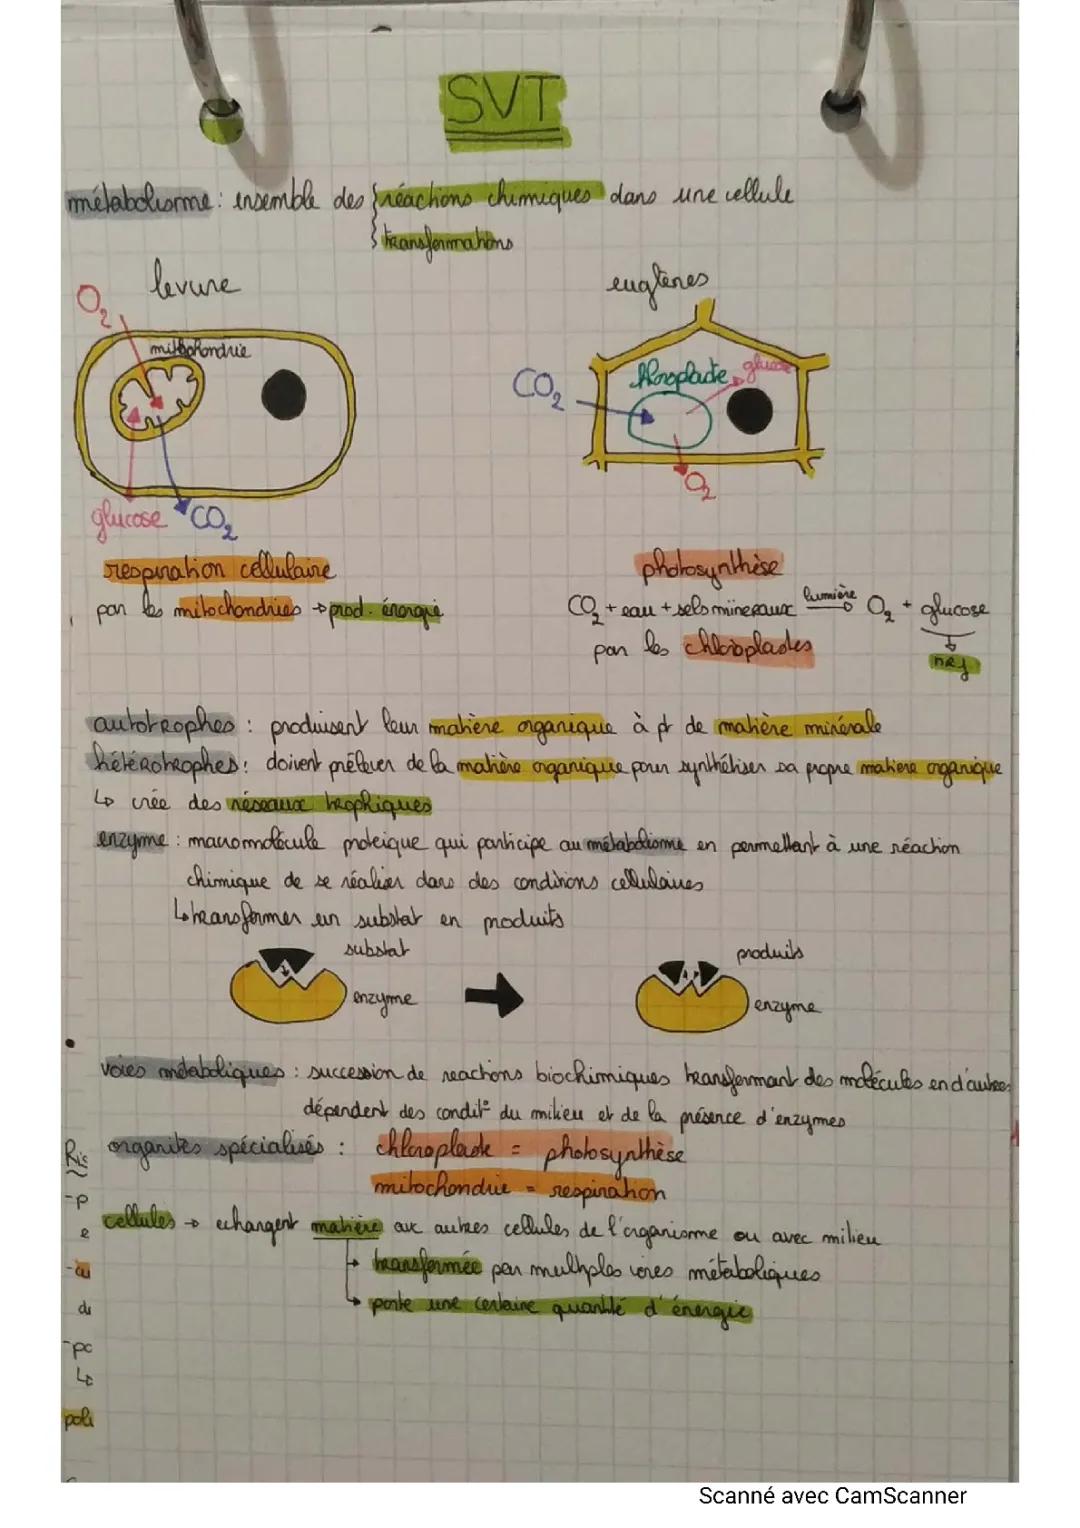 SVT
métabolisme : ensemble des { réactions chimiques dans une cellule
transformations
levure
euglènes
O2
mitochondrie
CO2
chloroplaste
glucose
O2
glucose
CO2
respiration cellulaire
photosynthèse
par les mitochondries → prod. énergie
CO2 + eau + sels mineraux lumière → O2 + glucose
par les chloroplastes
nrj
autotrophes : produisent leur matière organique à pr de matière minérale
hétérotrophes : doivent prélever de la matière organique pour synthétiser sa propre matière organique
↳ crée des réseaux trophiques
enzyme : macromolécule protéique qui participe au métabolisme en permettant à une réaction
chimique de se réaliser dans des conditions cellulaires
↳ transformer un substrat en produits
substrat
produits
enzyme
enzyme
voies métaboliques : succession de reactions biochimiques transformant des molécules en d'autres
dépendent des condit° du milieu et de la présence d'enzymes
organites spécialisés : chloroplaste = photosynthèse
mitochondrie = respiration
cellules → echangent matière avc autres cellules de l'organisme ou avec milieu
→ transformée par multiples voies métaboliques
→ porte une certaine quantité d'énergie
Ris
-p
e
-au
de
-po
↳
poli
Scanné avec CamScanner